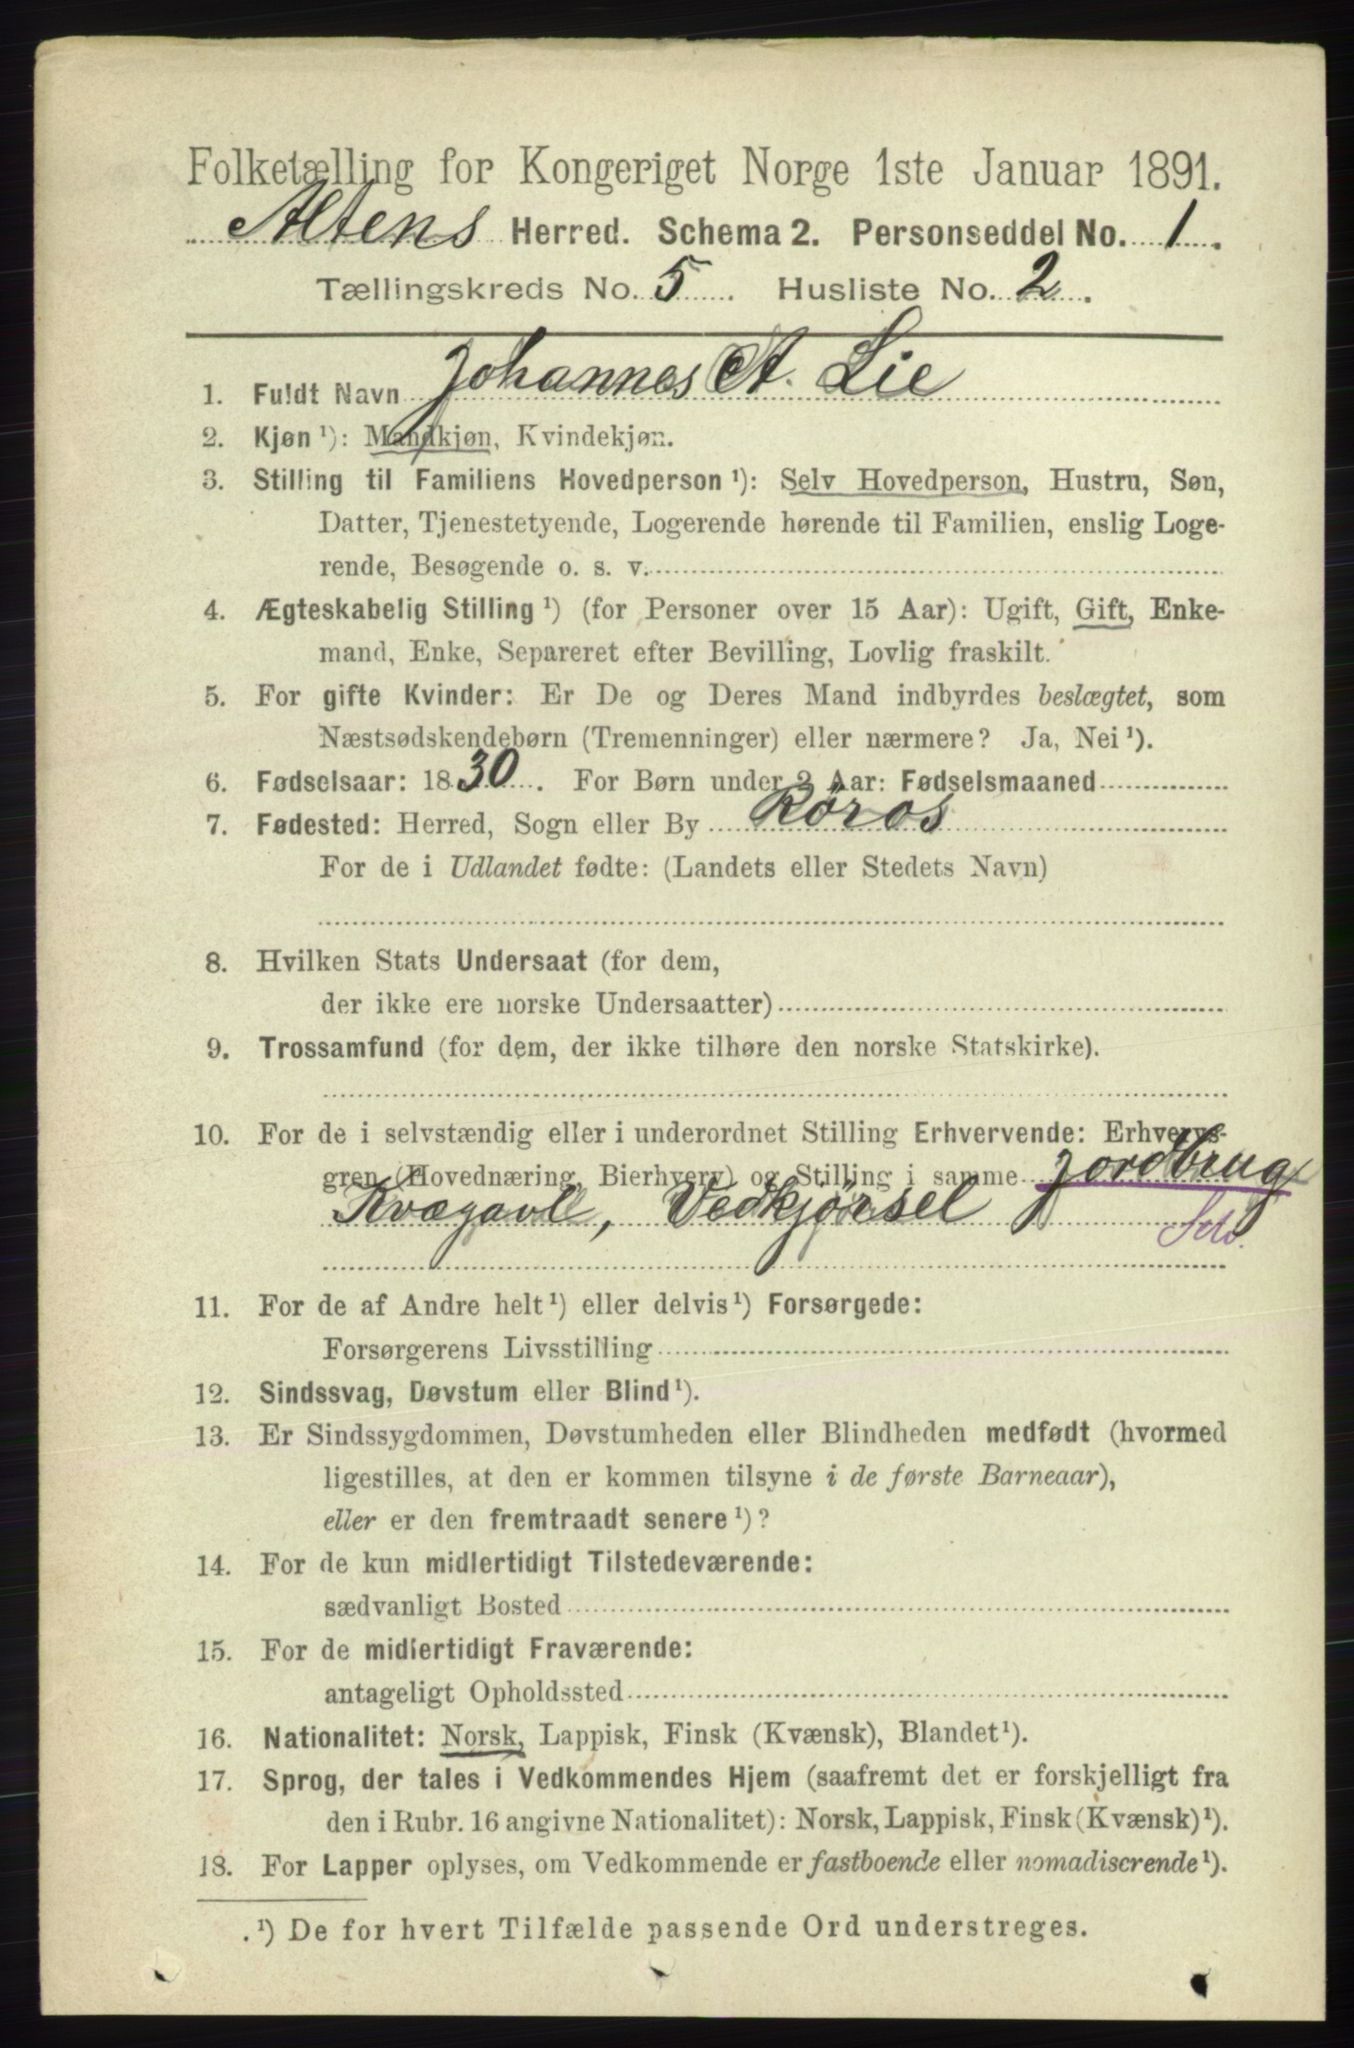 Folketælling for Kongeriget Norge 1ste Januar 1891.
Altens Herred. Schema 2. Personseddel No. 1.
Tællingskreds No. 5. Husliste No. 2.
1. Fuldt Navn Johannes A. Lie
2. Kjøn ¹): Mandkjøn, Kvindekjøn.
3. Stilling til Familiens Hovedperson ¹): Selv Hovedperson, Hustru, Søn,
Datter, Tjenestetyende, Logerende hørende til Familien, enslig Loge-
rende, Besøgende o. s. v.
4. Ægteskabelig Stilling ¹) (for Personer over 15 Aar): Ugift, Gift, Enke-
mand, Enke, Separeret efter Bevilling, Lovlig fraskilt.
5. For gifte Kvinder: Er De og Deres Mand indbyrdes beslægtet, som
Næstsødskendebørn (Tremenninger) eller nærmere? Ja, Nei ¹).
6. Fødselsaar: 1830. For Børn under 2 Aar: Fødselsmaaned
7. Fødested: Herred, Sogn eller By Røros
For de i Udlandet fødte: (Landets eller Stedets Navn)
8. Hvilken Stats Undersaat (for dem,
der ikke ere norske Undersaatter)
9. Trossamfund (for dem, der ikke tilhøre den norske Statskirke).
10. For de i selvstændig eller i underordnet Stilling Erhvervende: Erhvervs-
gren (Hovednæring, Bierhverv) og Stilling i samme Jordbrug
Kvægavl, Vedkjørsel Selv.
11. For de af Andre helt ¹) eller delvis ¹) Forsørgede:
Forsørgerens Livsstilling
12. Sindssvag, Døvstum eller Blind ¹).
13. Er Sindssygdommen, Døvstumheden eller Blindheden medfødt (hvormed
ligestilles, at den er kommen tilsyne i de første Barneaar),
eller er den fremtraadt senere ¹)?
14. For de kun midlertidigt Tilstedeværende:
sædvanligt Bosted
15. For de midlertidigt Fraværende:
antageligt Opholdssted
16. Nationalitet: Norsk, Lappisk, Finsk (Kvænsk), Blandet ¹).
17. Sprog, der tales i Vedkommendes Hjem (saafremt det er forskjelligt fra
den i Rubr. 16 angivne Nationalitet): Norsk, Lappisk, Finsk (Kvænsk) ¹).
18. For Lapper oplyses, om Vedkommende er fastboende eller nomadiserende ¹).
¹) De for hvert Tilfælde passende Ord understreges.